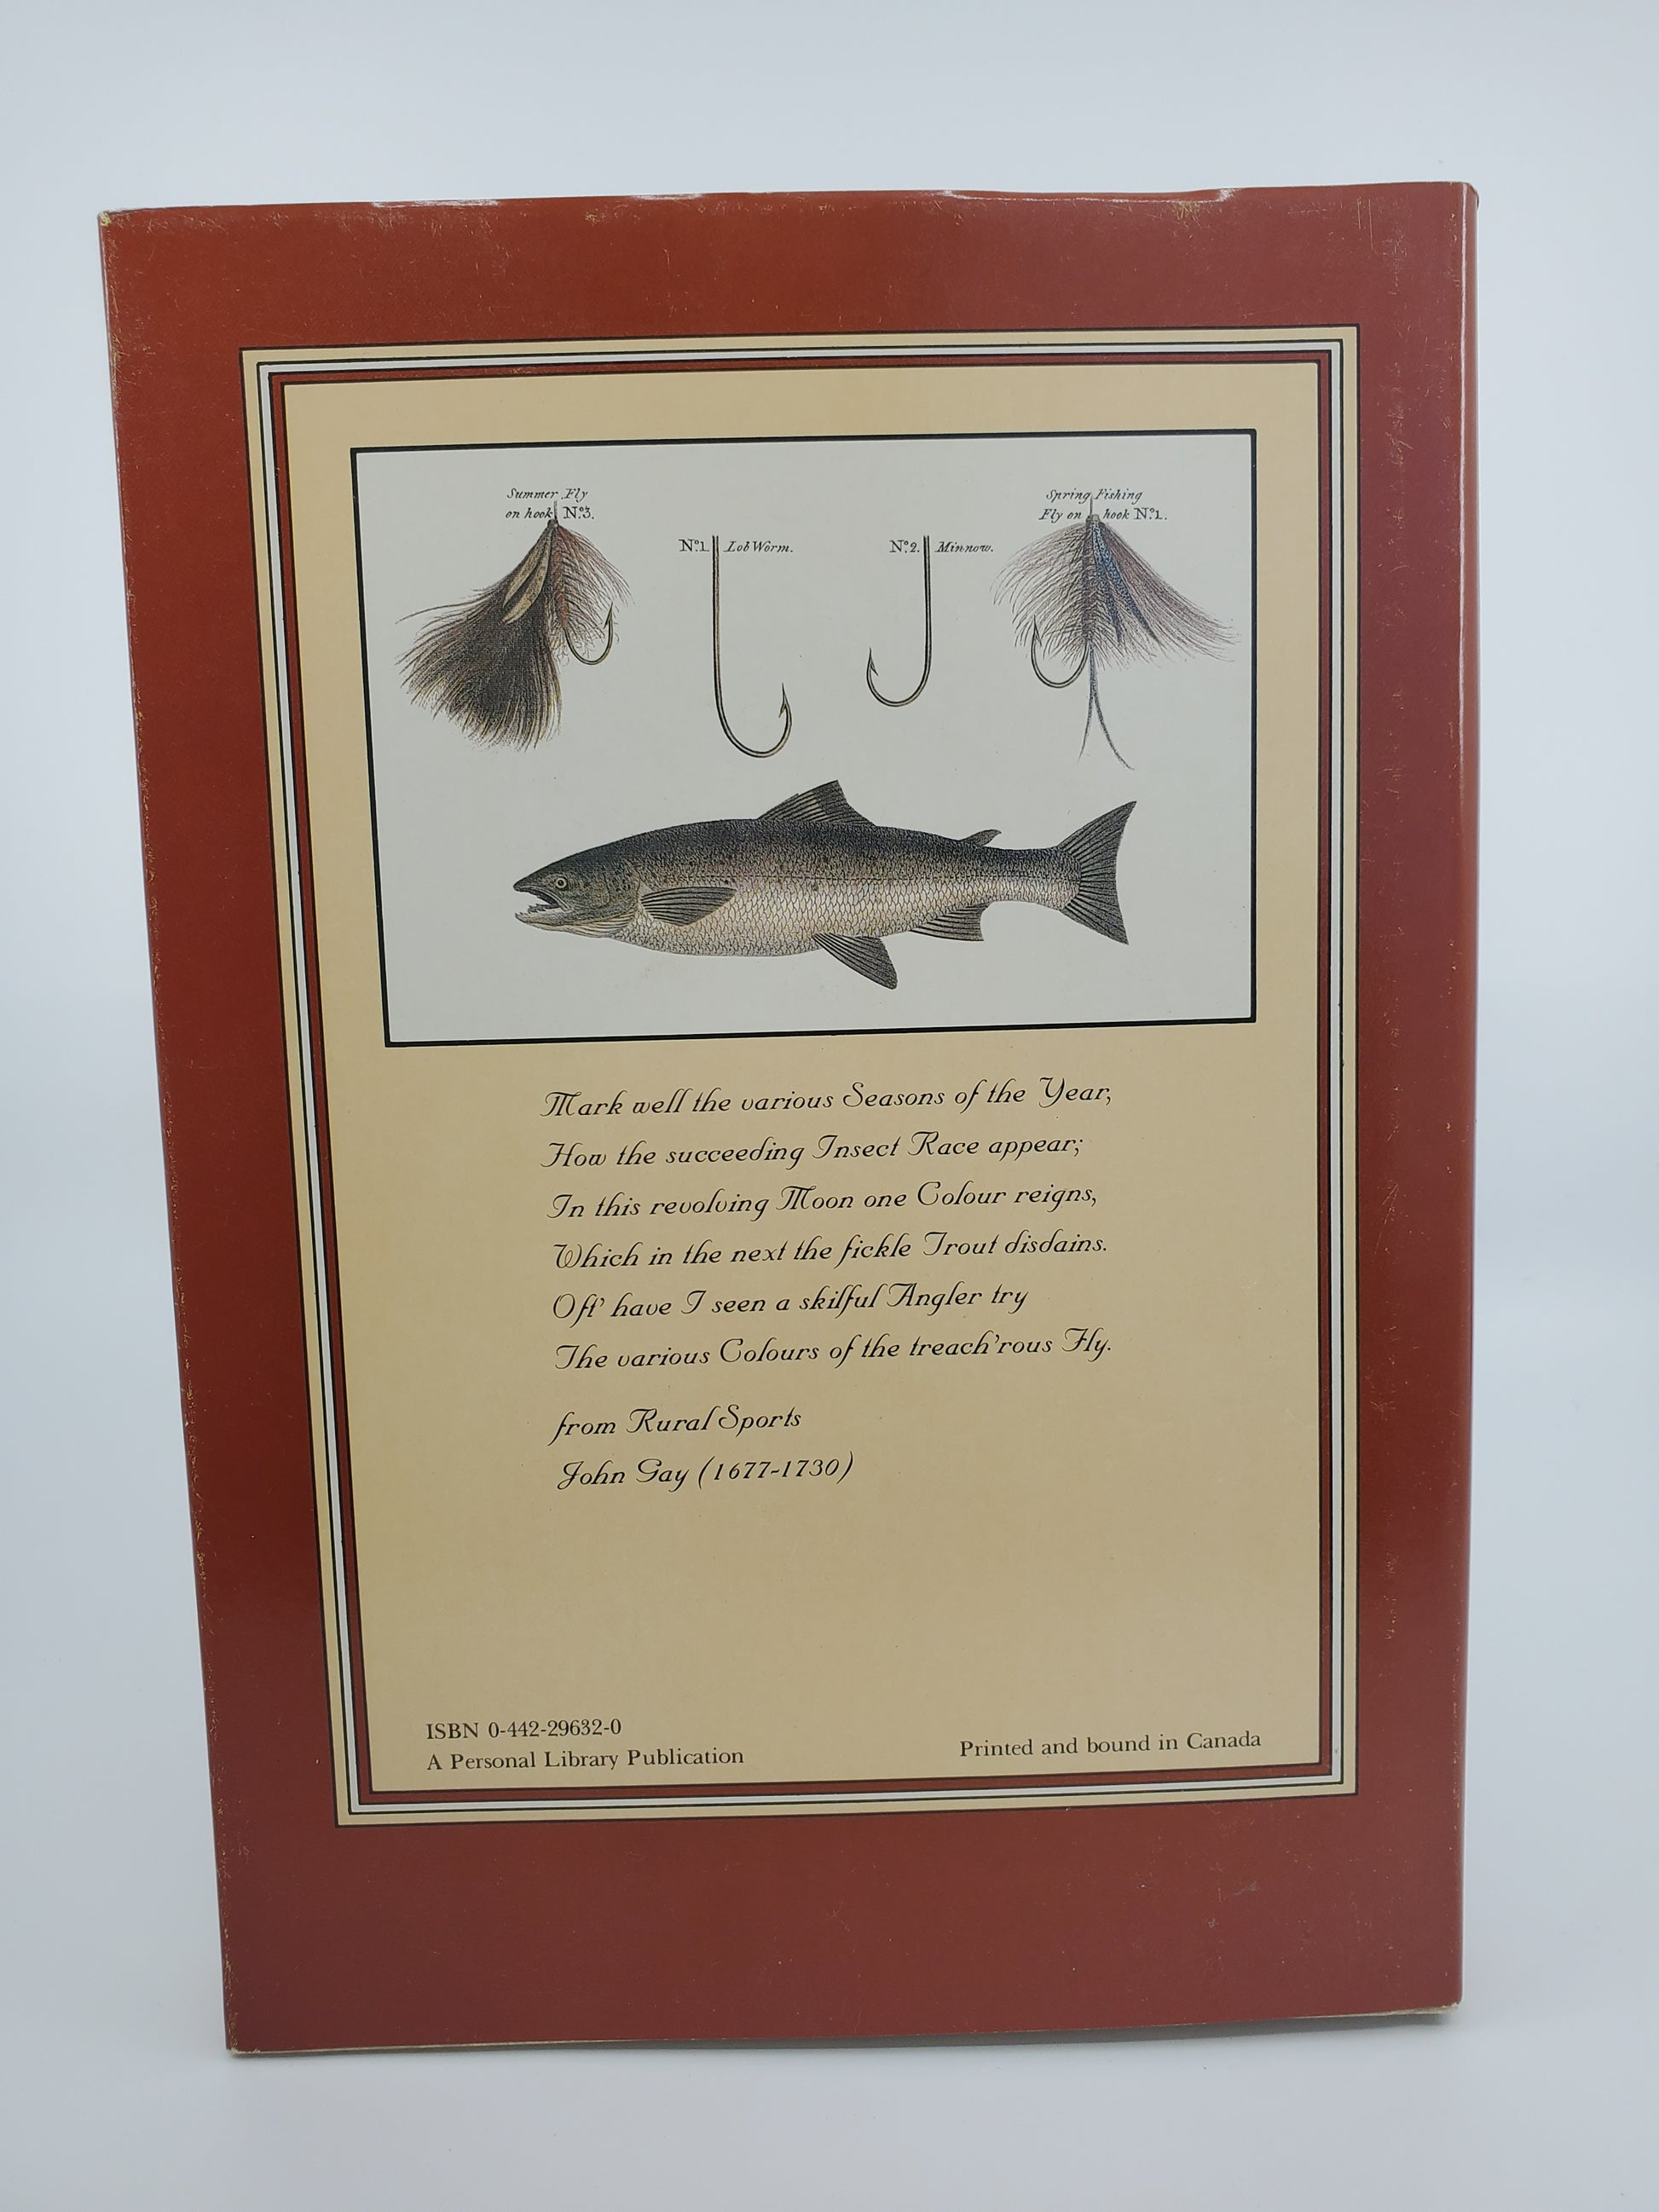 Summer Fly
on hook Nº3.
Nº1. Lob Worm.
Nº2. Minnow.
Spring Fishing
Fly on hook Nº1.
Mark well the various Seasons of the Year,
How the succeeding Insect Race appear;
In this revolving Moon one Colour reigns,
Which in the next the fickle Trout disdains.
Oft' have I seen a skilful Angler try
The various Colours of the treach'rous Fly.
from Rural Sports
John Gay (1677-1730)
ISBN 0-442-29632-0
A Personal Library Publication
Printed and bound in Canada